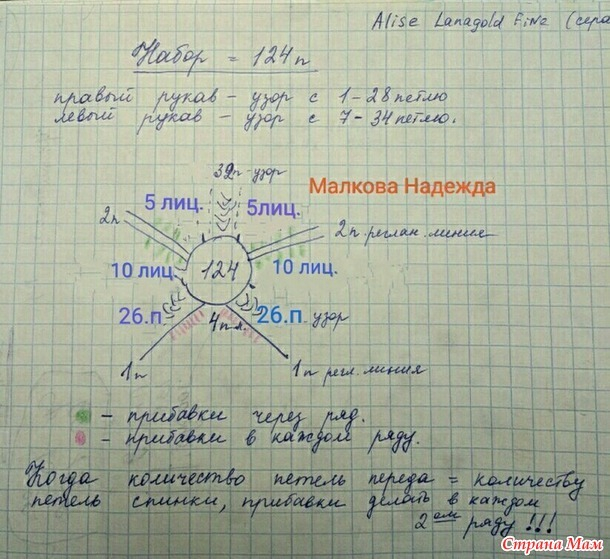 Alise Lanagold Fine (сера
Набор = 124п
правый рукав - узор с 1-28 петлю
левый рукав - узор с 7-34 петлю.
32п-узор
Малкова Надежда
5 лиц. 5лиц.
2п 2п.реглан.линия
10 лиц. 124 10 лиц.
26.п. 4п 26.п. узор
1п 1п регл.линия
- прибавки через ряд.
- прибавки в каждом ряду.
Когда количество петель переда = количеству
петель спинки, прибавки делать в каждом
2ом ряду!!!
Страна Мам